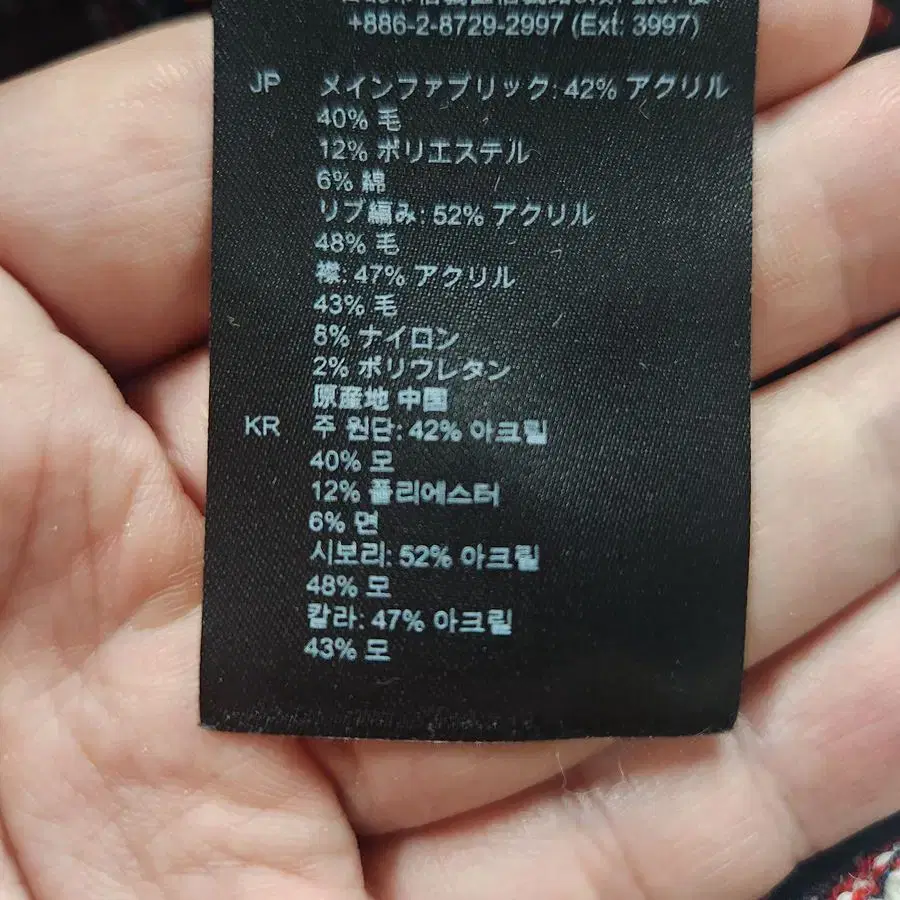 +886-2-8729-2997 (Ext: 3997)
JP メインファブリック: 42% アクリル
40% 毛
12% ポリエステル
6% 綿
リブ編み: 52% アクリル
48% 毛
襟: 47% アクリル
43% 毛
8% ナイロン
2% ポリウレタン
原産地 中国
KR 주 원단: 42% 아크릴
40% 모
12% 폴리에스터
6% 면
시보리: 52% 아크릴
48% 모
칼라: 47% 아크릴
43% 모